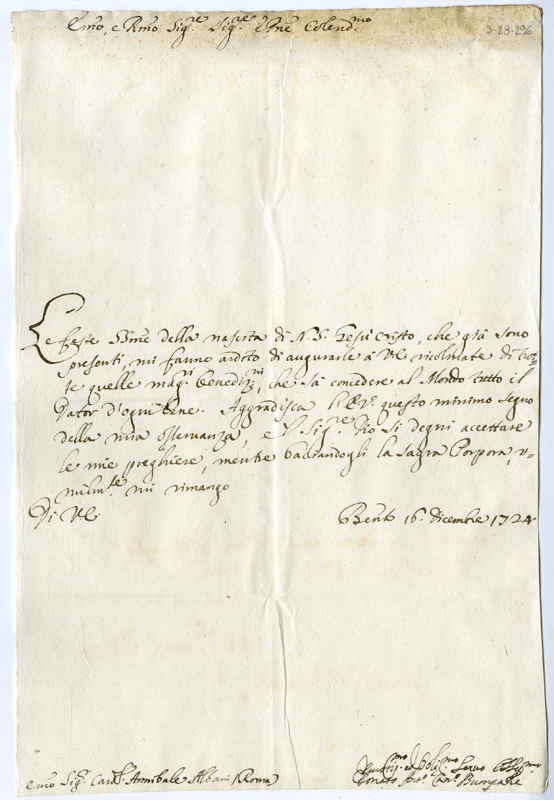 Emo, e Rmo Sig.re Sig.re Pne Colend.mo
3-28-296
Le feste SSme della nascita di N. S. Gesù Cristo, che già sono
presenti, mi fanno ardito di augurarle à V.E. ricolmate di tut=
te quelle mag.ri benediz.ni, che sà concedere al Mondo tutto il
Dator d'ogni bene. Aggradisca l'E.V. questo minimo segno
della mia osservanza, e 'l Sig.re Dio si degni accettare
le mie preghiere, mentre bacciandogli la Sagra Porpora, u=
milm.te mi rimango
Di V.E.
Bento 16. Dicembre 1724.
Emo Sig.r Card.l Annibale Albani Roma
Servo